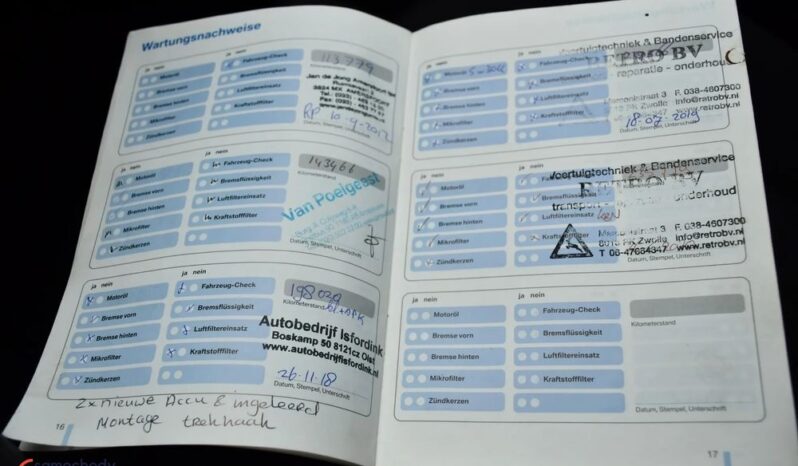 Wartungsnachweise
ja nein
ja nein
Motoröl
Fahrzeug-Check
113779
Bremse vorn
Bremsflüssigkeit
Bremse hinten
Luftfiltereinsatz
Mikrofilter
Kraftstofffilter
Zündkerzen
10-9-2012
Datum, Stempel, Unterschrift
ja nein
ja nein
Motoröl
Fahrzeug-Check
143466
Bremse vorn
Bremsflüssigkeit
Bremse hinten
Luftfiltereinsatz
Van Poelgeest
Mikrofilter
Kraftstofffilter
Zündkerzen
Datum, Stempel, Unterschrift
ja nein
ja nein
Motoröl
Fahrzeug-Check
198029
Kilometerstand
Bremse vorn
Bremsflüssigkeit
Bremse hinten
Luftfiltereinsatz
Autobedrijf Isfordink
Boskamp 50 8121cz Olst
www.autobedrijfisfordink.nl
Mikrofilter
Kraftstofffilter
Zündkerzen
26-11-18
Datum, Stempel, Unterschrift
2x nieuwe Accu & ingeleerd
Montage trekhaak
16
ja nein
ja nein
Motoröl
Fahrzeug-Check
Voertuigtechniek & Bandenservice
RETRO BV
Bremse vorn
Bremsflüssigkeit
reparatie - onderhoud
Bremse hinten
Luftfiltereinsatz
F. 038-4607300
info@retrobv.nl
www.retrobv.nl
Mikrofilter
Kraftstofffilter
18-07-2019
Zündkerzen
Datum, Stempel, Unterschrift
ja nein
ja nein
Motoröl
Voertuigtechniek & Bandenservice
RETRO BV
Bremse vorn
Bremsflüssigkeit
transport - onderhoud
Bremse hinten
Luftfiltereinsatz
F. 038-4607300
Mikrofilter
Kraftstofffilter
8015 PK Zwolle info@retrobv.nl
T 06-47684347 www.retrobv.nl
Zündkerzen
Datum, Stempel, Unterschrift
ja nein
ja nein
Motoröl
Fahrzeug-Check
Kilometerstand
Bremse vorn
Bremsflüssigkeit
Bremse hinten
Luftfiltereinsatz
Mikrofilter
Kraftstofffilter
Zündkerzen
Datum, Stempel, Unterschrift
17